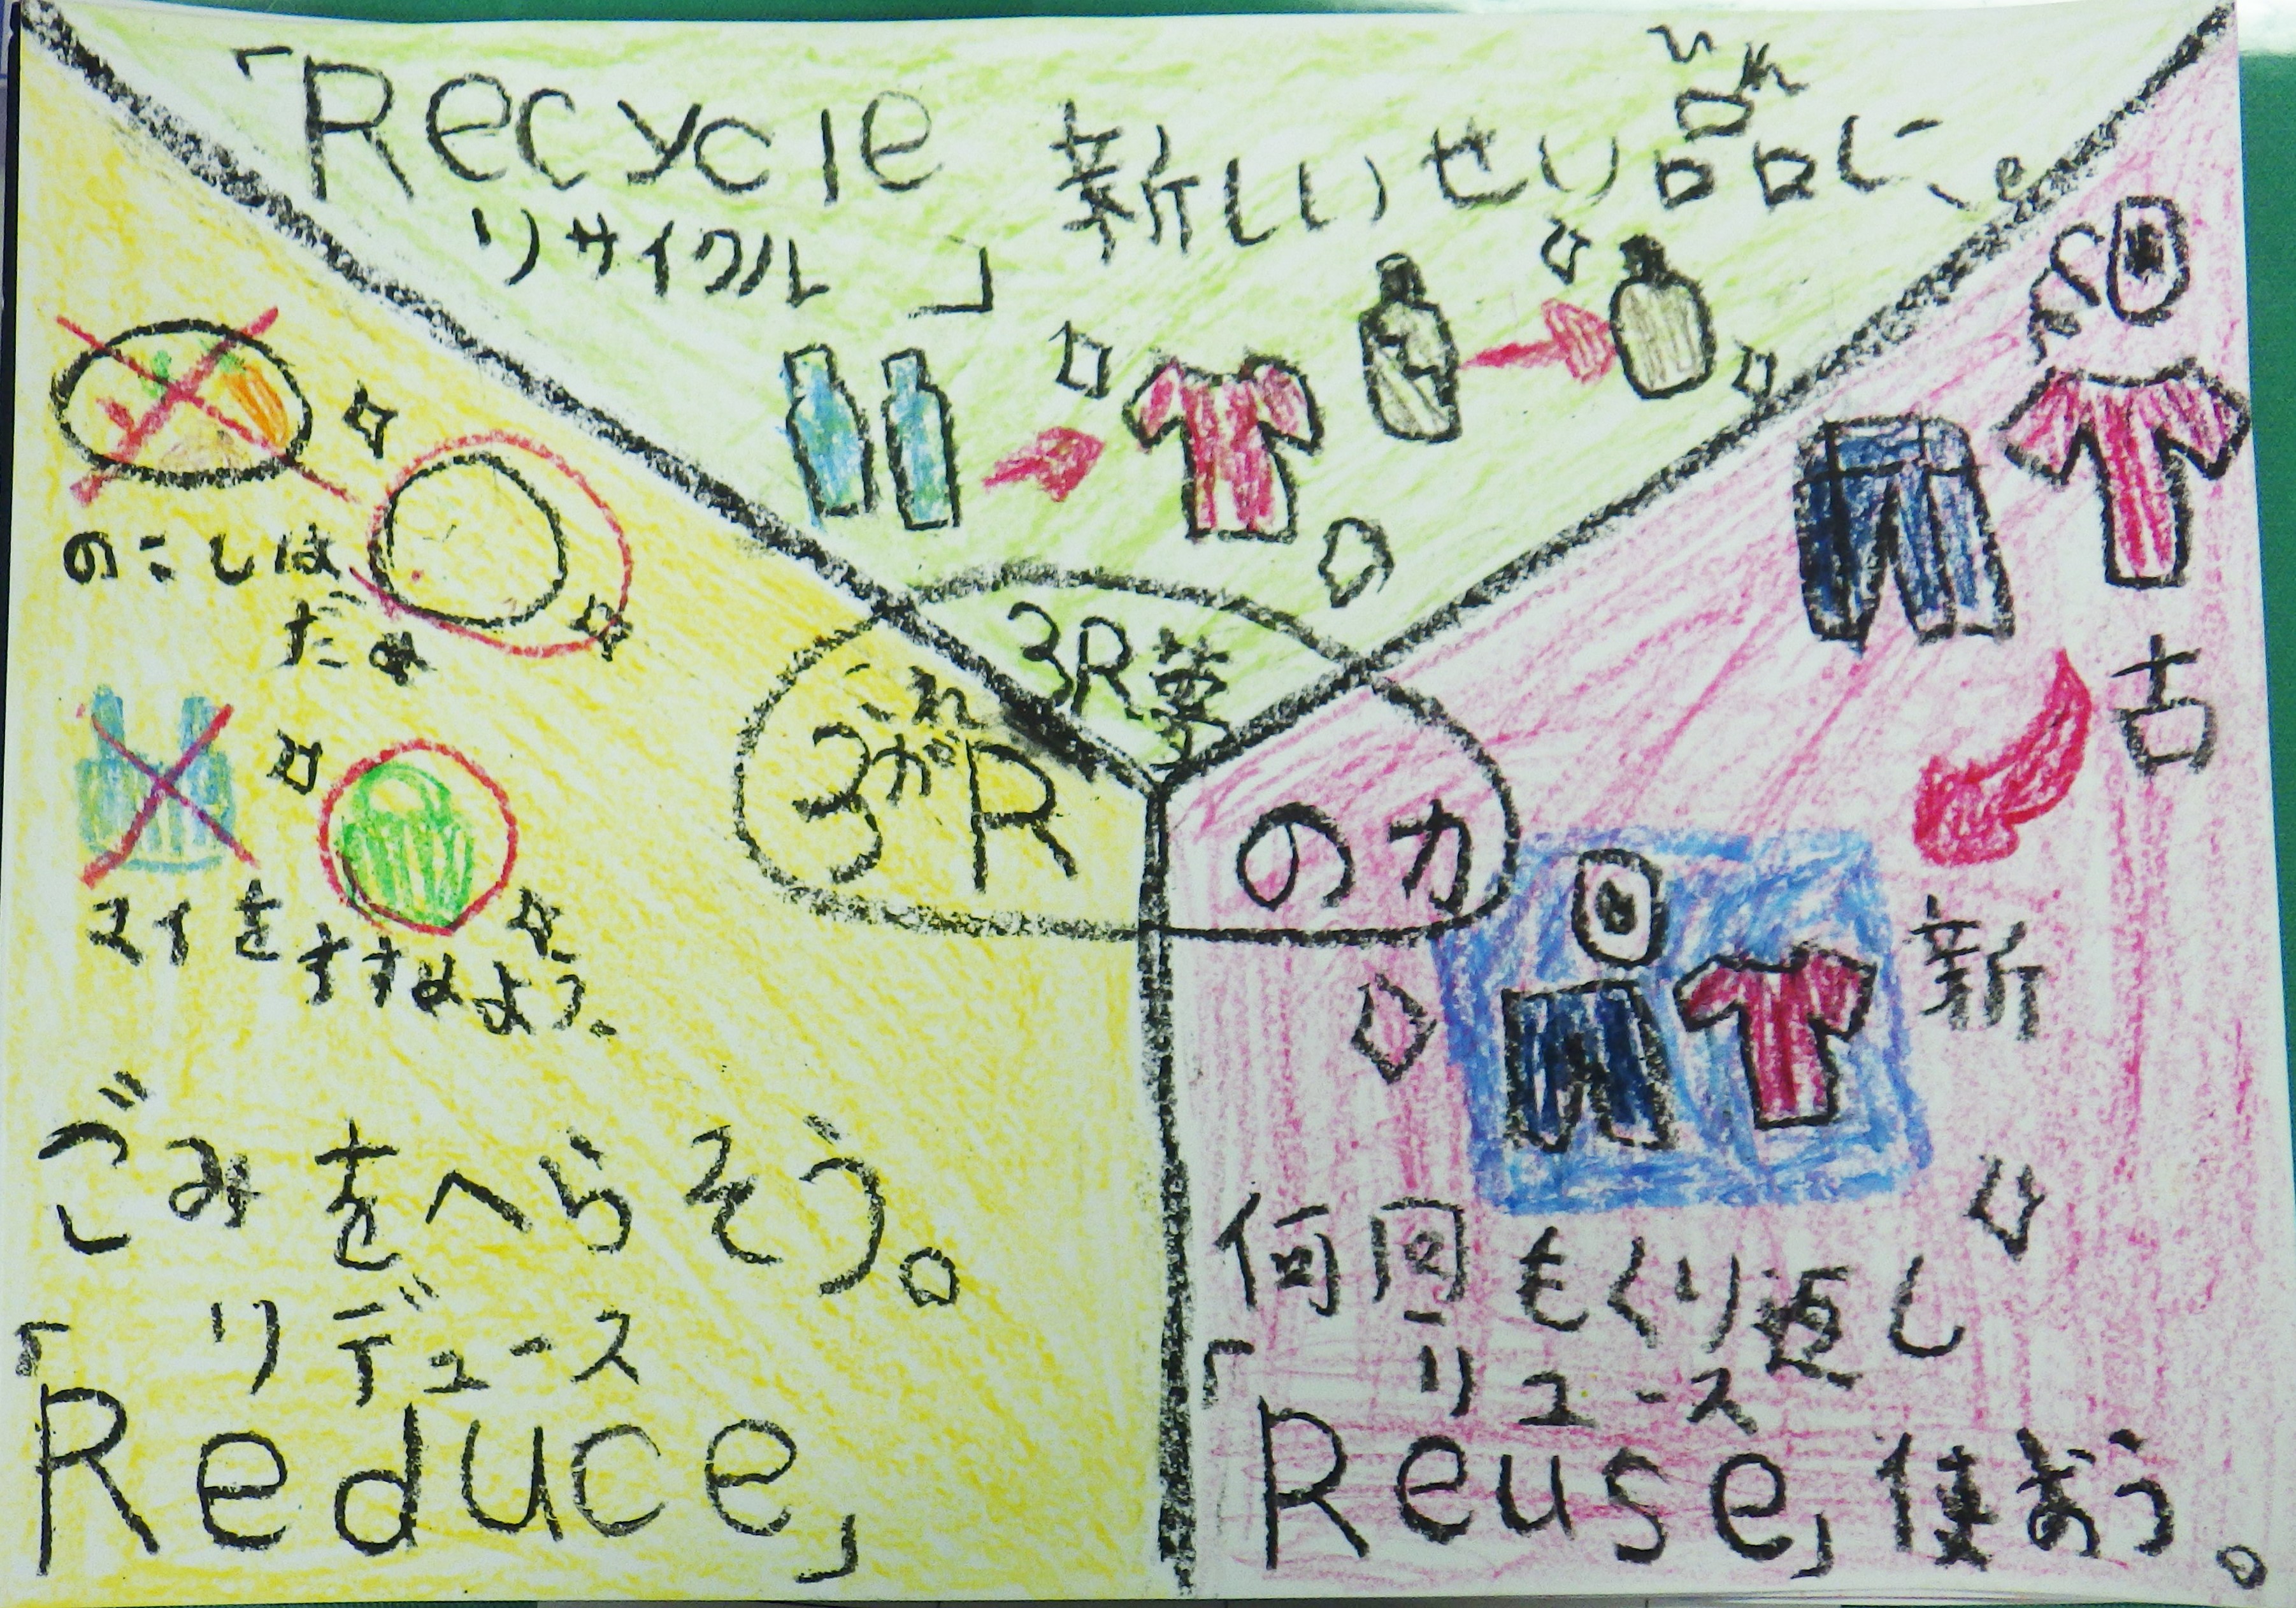 「Recycle
リサイクル」
新しいせい品に。
ひん
のこしは
だめ
マイをすすめよう。
ごみをへらそう。
リデュース
「Reduce」
3R
これが
3R
のカ
古
新
何回もくり返し
リユース
「Reuse」使おう。